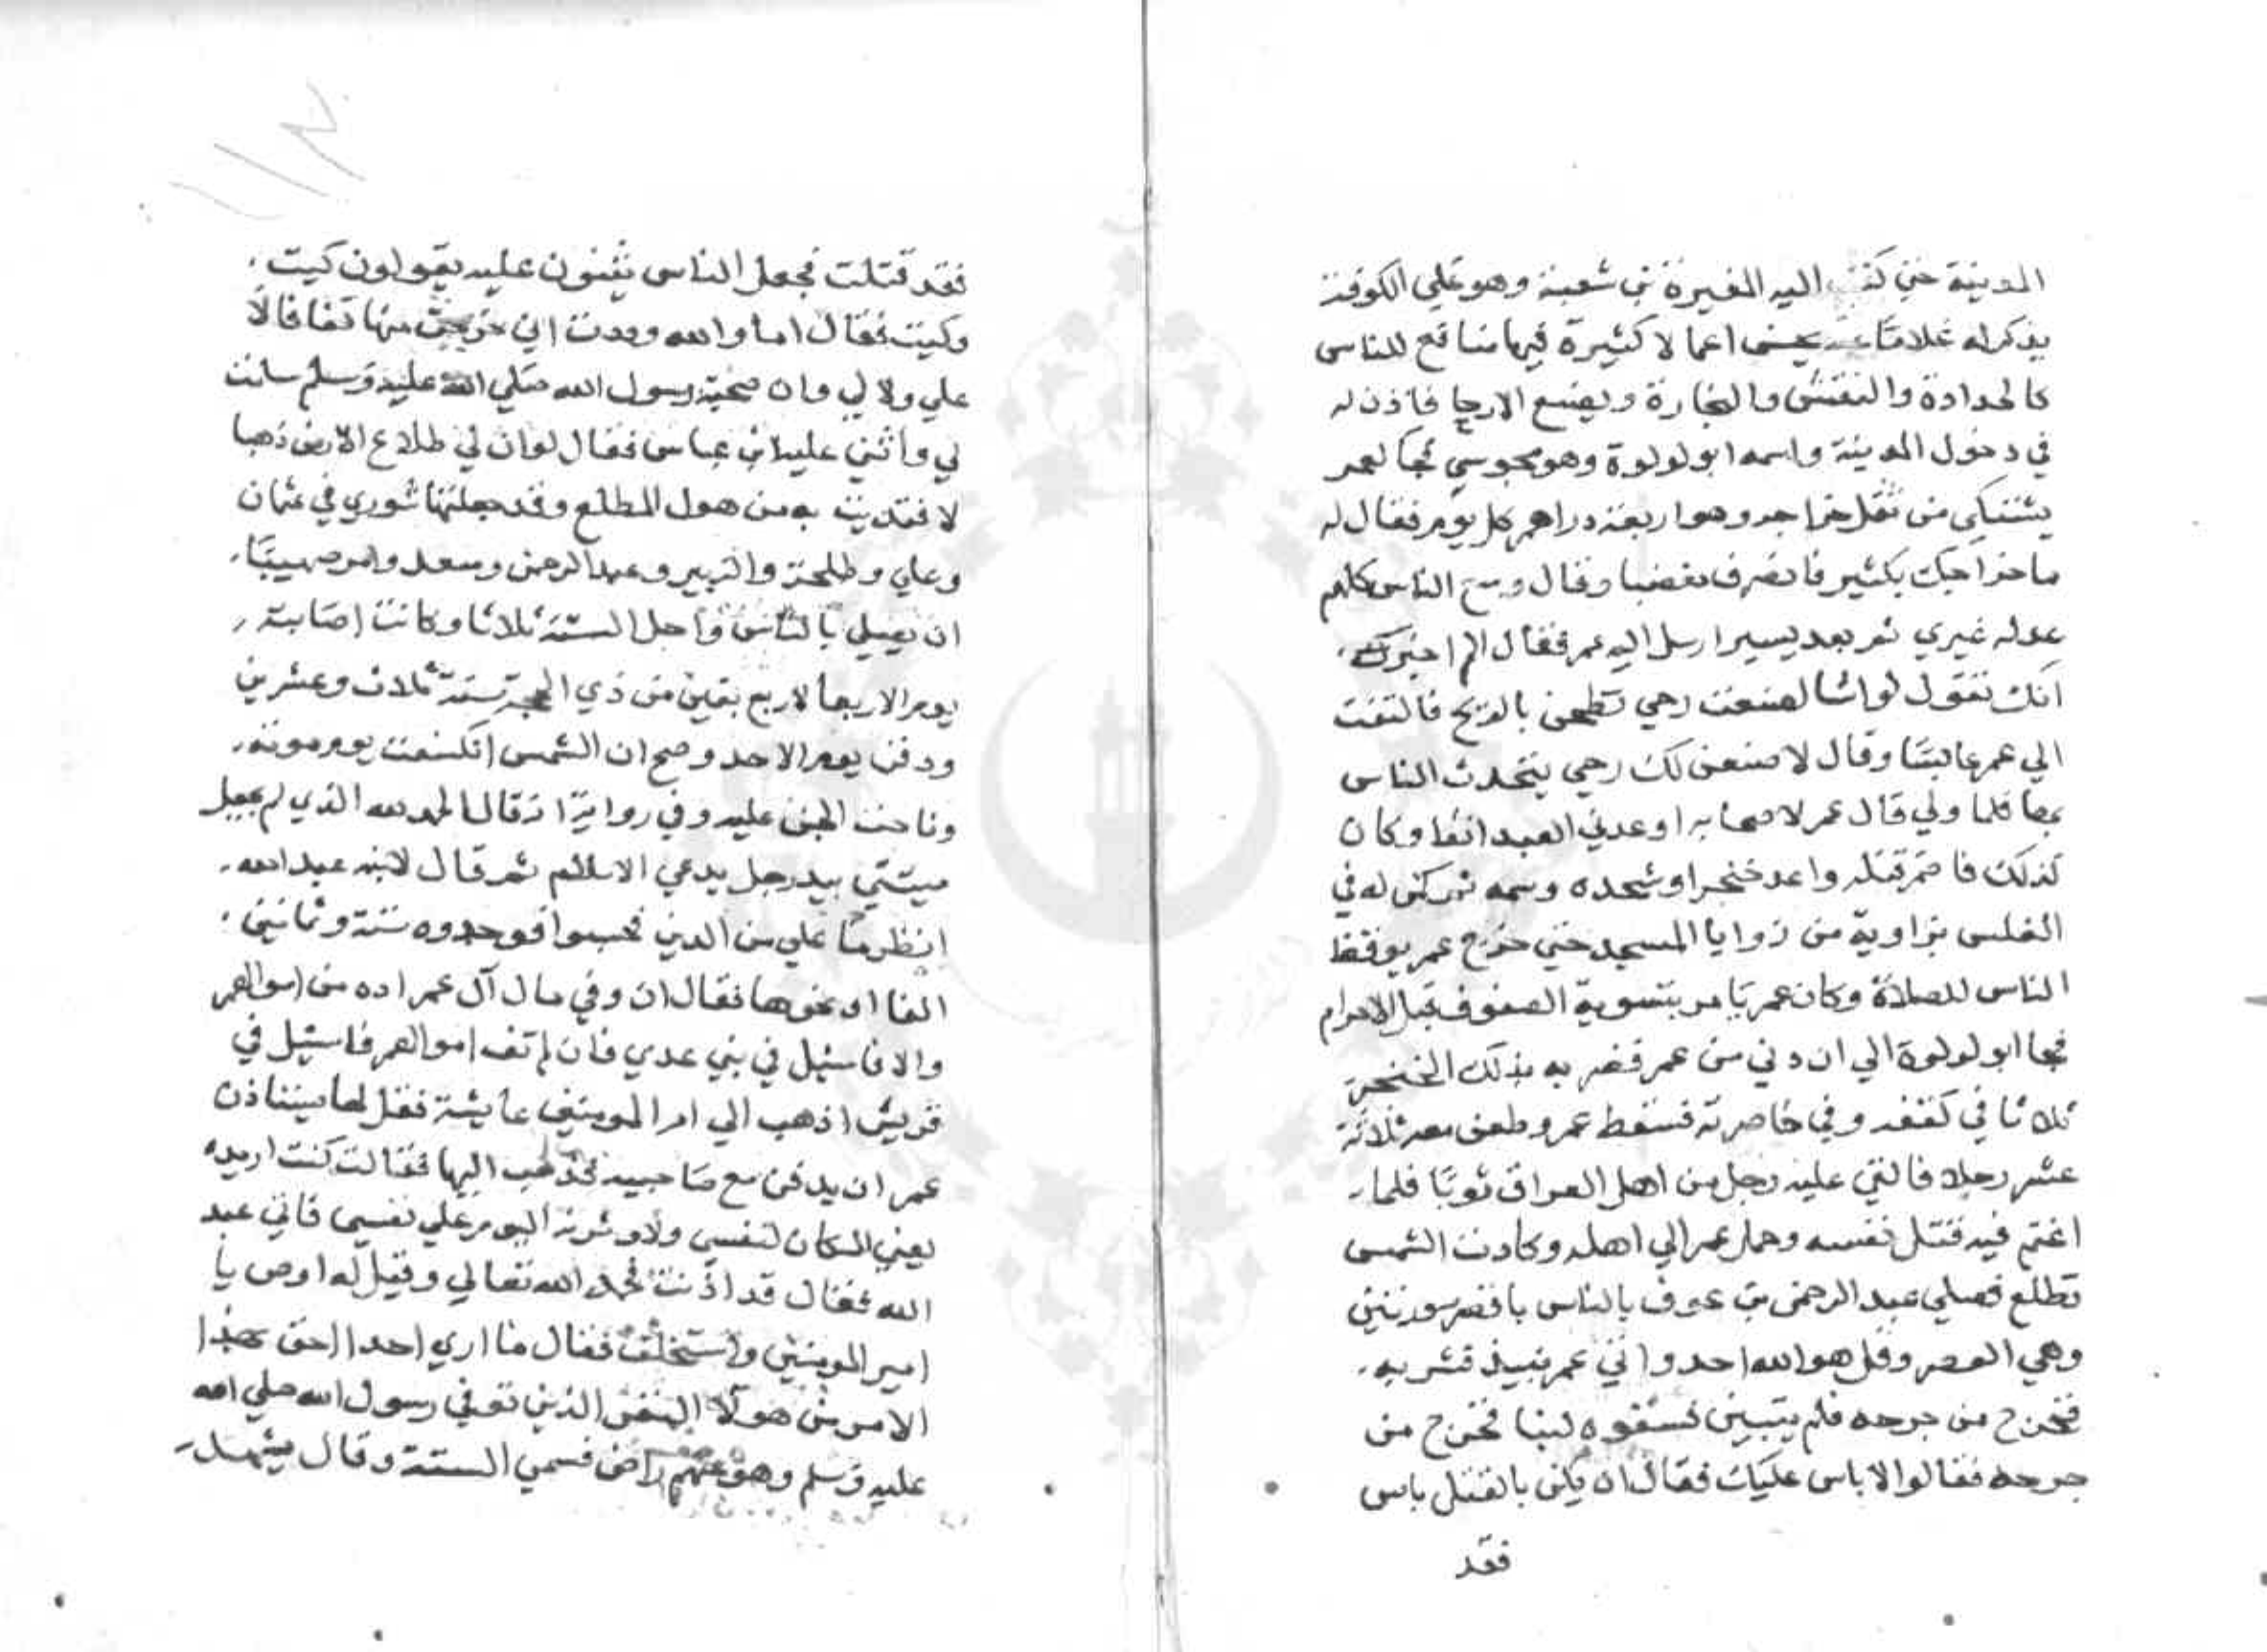 المدينة حتي كتب اليه المغيرة بن شعبة وهو علي الكوفة
يذكر له غلاما عنده يحسن اعمالا كثيرة فيها منافع للناس
كالحدادة والنقش والنجارة ويصنع الارحا فاذن له
في دخول المدينة واسمه ابو لولوة وهو مجوسي فجا لعمر
يشتكي من ثقل خراجه وهو اربعة دراهم كل يوم فقال له
ما خراجك بكثير فانصرف مغضبا وقال وسع الناس كلهم
عدله غيري ثم بعد يسير ارسل اليه عمر فقال الم اخبرك
انك تقول لو اشا لصنعت رحي تطحن بالريح فالتفت
الي عمر عابسا وقال لاصنعن لك رحي يتحدث الناس
بها فلما ولي قال عمر لاصحابه اوعدني العبد انفا وكان
كذلك فاضمر قتله واعد خنجرا وشحده وسمه ثم كمن له في
الغلس بزاوية من زوايا المسجد حتي خرج عمر يوقظ
الناس للصلاة وكان عمر يامر بتسوية الصفوف قبل الاحرام
فجا ابو لولوة الي ان دني من عمر فضربه بذلك الخنجر
ثلاثا في كتفه وفي خاصرته فسقط عمر وطعن معه ثلاثة
عشر رجلا فالقي عليه رجل من اهل العراق ثوبا فلما
اغتم فيه قتل نفسه وحمل عمر الي اهله وكادت الشمس
تطلع فصلي عبد الرحمن بن عوف بالناس باقصر سورتين
وهي العصر وقل هو الله احد واتي عمر بنبيذ فشربه
فخرج من جرحه فلم يتبين فسقوه لبنا فخرج من
جرحه فقالوا لا باس عليك فقال ان يكن بالقتل باس
فقد
فقد قتلت فجعل الناس يثنون عليه يقولون كيت
وكيت فقال اما والله وددت اني خرجت منها كفافا لا
علي ولا لي وان صحبة رسول الله صلي الله عليه وسلم سلمت
لي واثني عليه ابن عباس فقال لو ان لي طلاع الارض ذهبا
لافتديت به من هول المطلع وقد جعلتها شوري في عثمان
وعلي وطلحة والزبير وعبد الرحمن وسعد وامر صهيبا
ان يصلي بالناس واجل الستة ثلاثا وكانت اصابته
يوم الاربعا لاربع بقين من ذي الحجة سنة ثلاث وعشرين
ودفن يوم الاحد وصح ان الشمس انكسفت يوم موته
وناحت الجن عليه وفي رواية انه قال الحمد لله الذي لم يجعل
ميتتي بيد رجل يدعي الاسلام ثم قال لابنه عبد الله
انظر ما علي من الدين فحسبوا فوجدوه ستة وثمانين
الفا او نحوها فقال ان وفي مال آل عمر اده من اموالهم
والا فاسئل في بني عدي فان لم تف اموالهم فاسئل في
قريش اذهب الي ام المومنين عايشة فقل لها يستاذن
عمر ان يدفن مع صاحبيه فذهب اليها فقالت كنت اريده
يعني المكان لنفسي ولاوثرنه اليوم علي نفسي فاتي عبد
الله فقال قد اذنت فحمد الله تعالي وقيل له اوص يا
امير المومنين واستخلف فقال ما اري احدا احق بهذا
الامر من هولآ النفر الذين توفي رسول الله صلي الله
عليه وسلم وهو عنهم راض فسمي الستة وقال يشهد